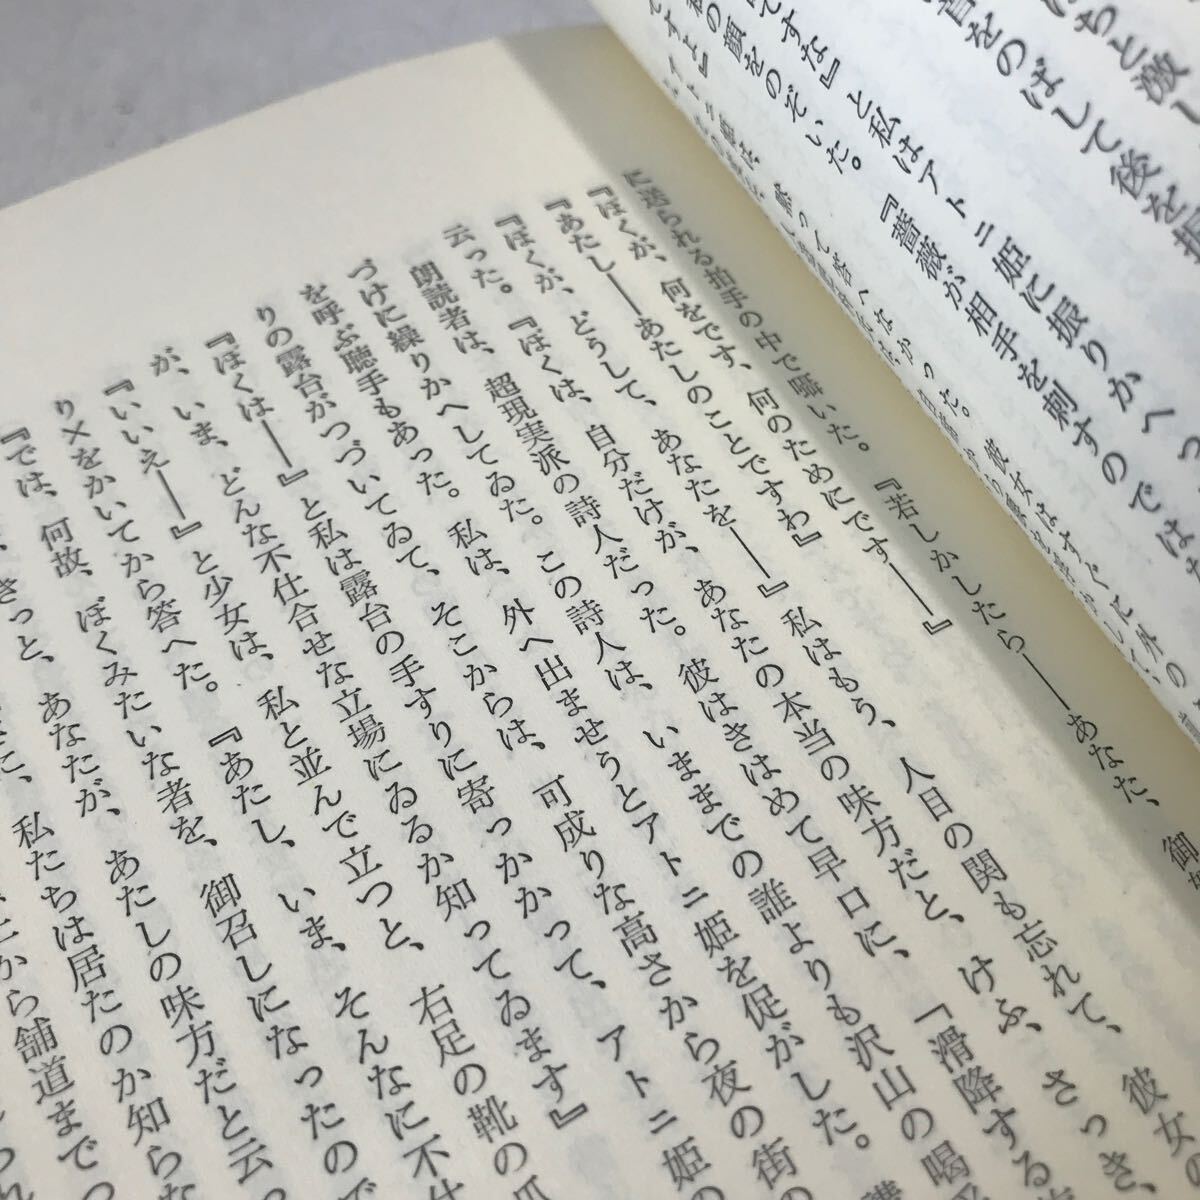 はちと激し
首をのばして後を振
ですな』と私はアトニ姫に振りかへっ
私の顔をのぞいた。『薔薇が相手を刺すのでは
ですよ』
アトニ姫は、黙って答へなかった。彼女はすぐに外の
に送られる拍手の中で囁いた。『若しかしたら――あなた、御
『ぼくが、何をです、何のためにです――』
『あたし――あたしのことですわ』
『ぼくが、どうして、あなたを――』私はもう、人目の関も忘れて、彼女の
云った。『ぼくは、自分だけが、あなたの本当の味方だと、けふ、さっき、
朗読者は、超現実派の詩人だった。彼はきはめて早口に、「滑降する
づけに繰りかへしてゐた。この詩人は、いままでの誰よりも沢山の喝
を呼ぶ聴手もあった。私は、外へ出ませうとアトニ姫を促がした。
りの露台がつづいてゐて、そこからは、可成りな高さから夜の街
『ぼくは――』と私は露台の手すりに寄っかかって、アトニ姫の
が、いま、どんな不仕合せな立場にゐるか知ってゐます』
『いいえ――』と少女は、私と並んで立つと、右足の靴の爪
り×をかいてから答へた。『あたし、いま、そんなに不仕
『では、何故、ぼくみたいな者を、御召しになったので
きっと、あなたが、あたしの味方だと云っ
に、私たちは居たのか知らな
上から舗道までつ